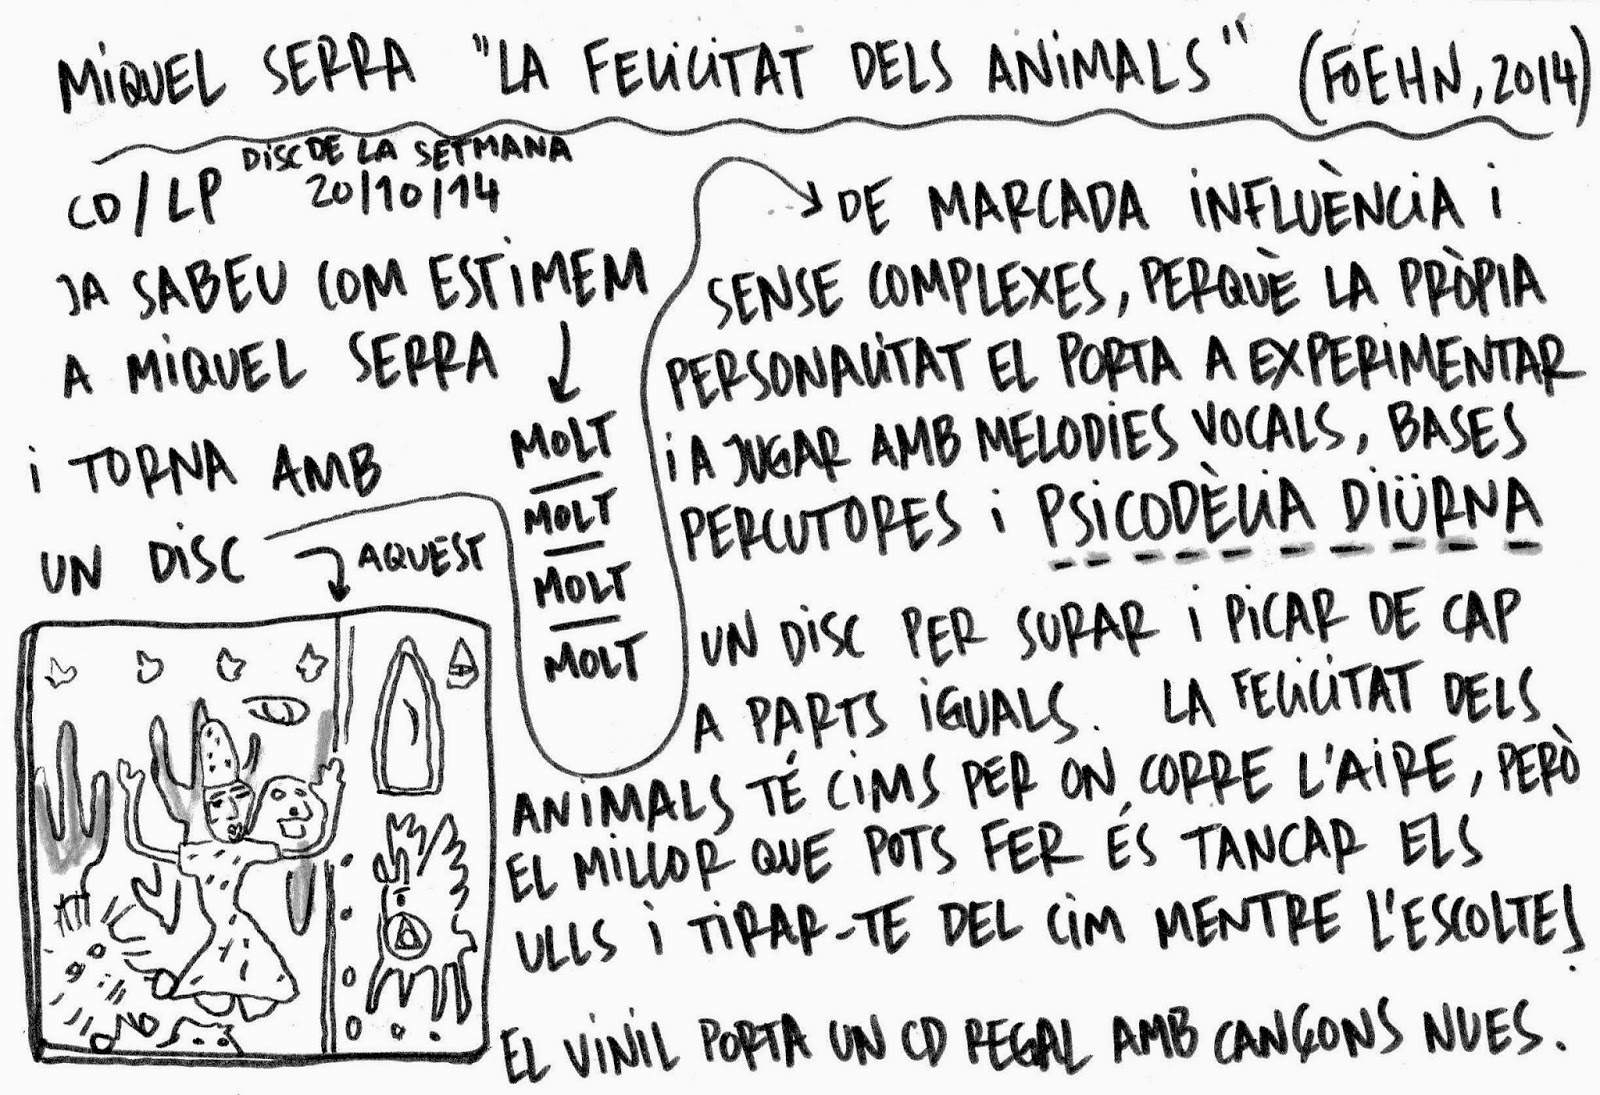 MIQUEL SERRA "LA FELICITAT DELS ANIMALS" (FOEHN, 2014)
DISC DE LA SETMANA
CD/LP 20/10/14
JA SABEU COM ESTIMEM
A MIQUEL SERRA
MOLT
MOLT
MOLT
MOLT
I TORNA AMB
UN DISC
AQUEST
DE MARCADA INFLUÈNCIA I
SENSE COMPLEXES, PERQUÈ LA PRÒPIA
PERSONALITAT EL PORTA A EXPERIMENTAR
I A JUGAR AMB MELODIES VOCALS, BASES
PERCUTORES I PSICODÈLIA DIÜRNA
UN DISC PER SURAR I PICAR DE CAP
A PARTS IGUALS. LA FELICITAT DELS
ANIMALS TÉ CIMS PER ON CORRE L'AIRE, PERÒ
EL MILLOR QUE POTS FER ÉS TANCAR ELS
ULLS I TIRAR-TE DEL CIM MENTRE L'ESCOLTES.
EL VINIL PORTA UN CD REGAL AMB CANÇONS NUES.